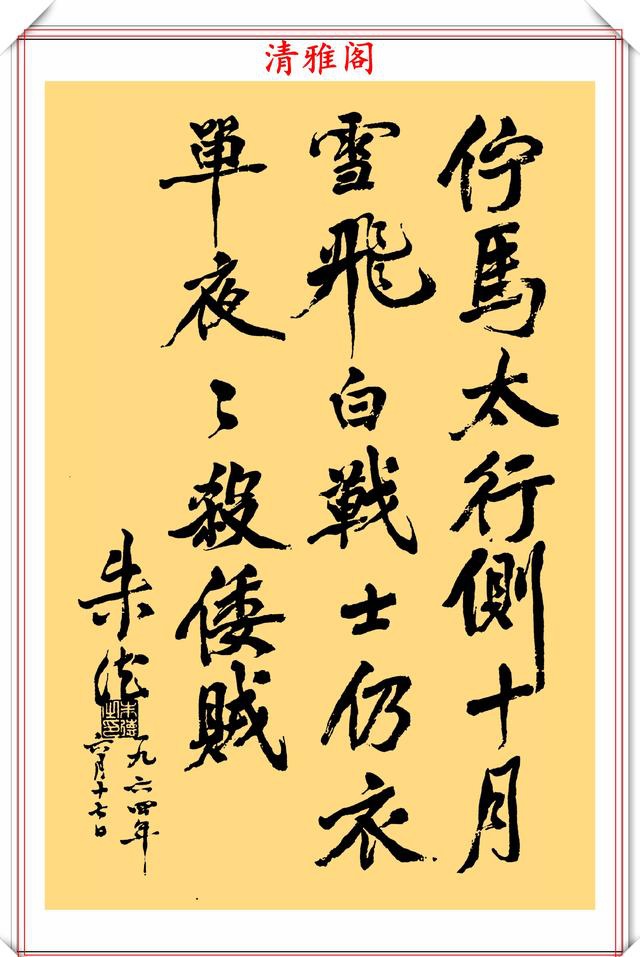 清雅阁
佇馬太行側十月
雪飛白戰士仍衣
單夜々殺倭賊
朱德
一九六四年
六月十七日
朱德之印